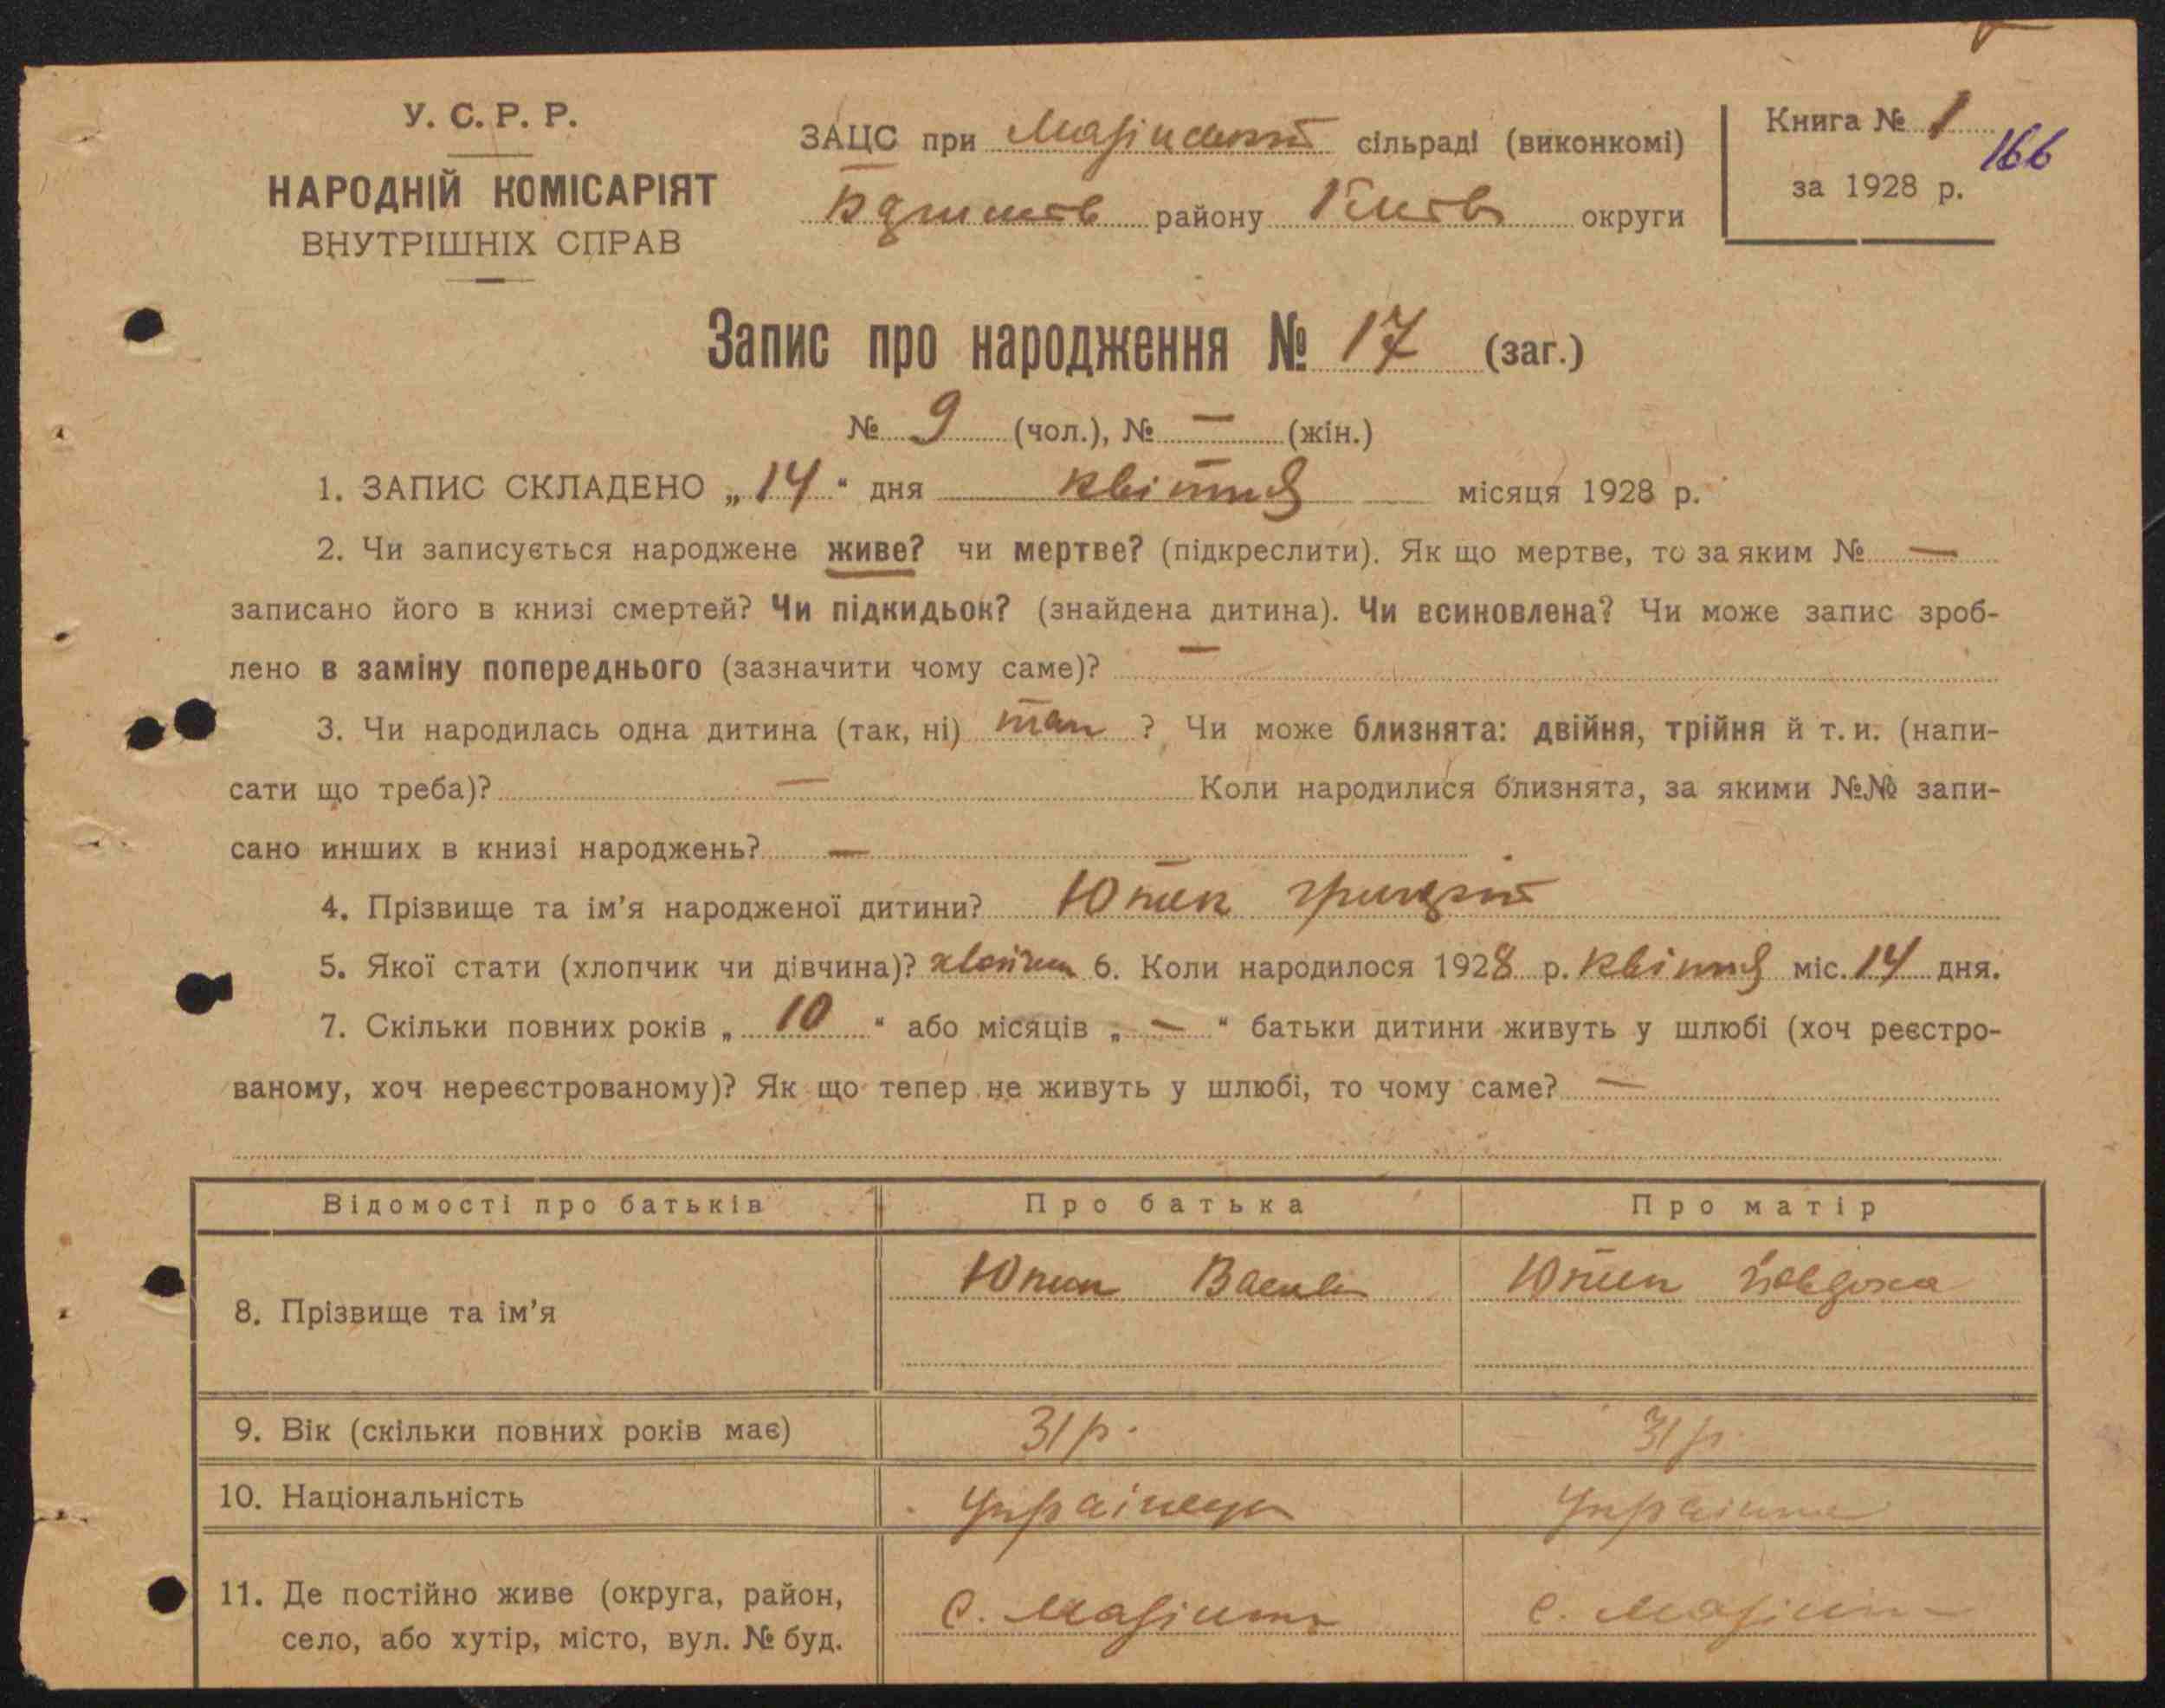 У. С. Р. Р.
НАРОДНІЙ КОМІСАРІЯТ
ВНУТРІШНІХ СПРАВ
ЗАЦС при сільраді (виконкомі)
району Київ округи
Книга № 1
166
за 1928 р.
Запис про народження № 17 (заг.)
№ 9 (чол.), № — (жін.)
1. ЗАПИС СКЛАДЕНО „14“ дня квітня місяця 1928 р.
2. Чи записується народжене живе? чи мертве? (підкреслити). Як що мертве, то за яким № —
записано його в книзі смертей? Чи підкидьок? (знайдена дитина). Чи всиновлена? Чи може запис зроб-
лено в заміну попереднього (зазначити чому саме)? —
3. Чи народилась одна дитина (так, ні) так ? Чи може близнята: двійня, трійня й т. и. (напи-
сати що треба)? — Коли народилися близнята, за якими №№ запи-
сано инших в книзі народжень? —
4. Прізвище та ім’я народженої дитини? Юпик
5. Якої стати (хлопчик чи дівчина)? хлопчик 6. Коли народилося 1928 р. квітня міс. 14 дня.
7. Скільки повних років „ 10 “ або місяців „ — “ батьки дитини живуть у шлюбі (хоч реєстро-
ваному, хоч нереєстрованому)? Як що тепер не живуть у шлюбі, то чому саме? —
Відомості про батьків Про батька Про матір
8. Прізвище та ім’я Юпик Василь Юпик Явдоха
9. Вік (скільки повних років має) 31 р. 31 р.
10. Національність Українець Українка
11. Де постійно живе (округа, район,
село, або хутір, місто, вул. № буд.
с. с.